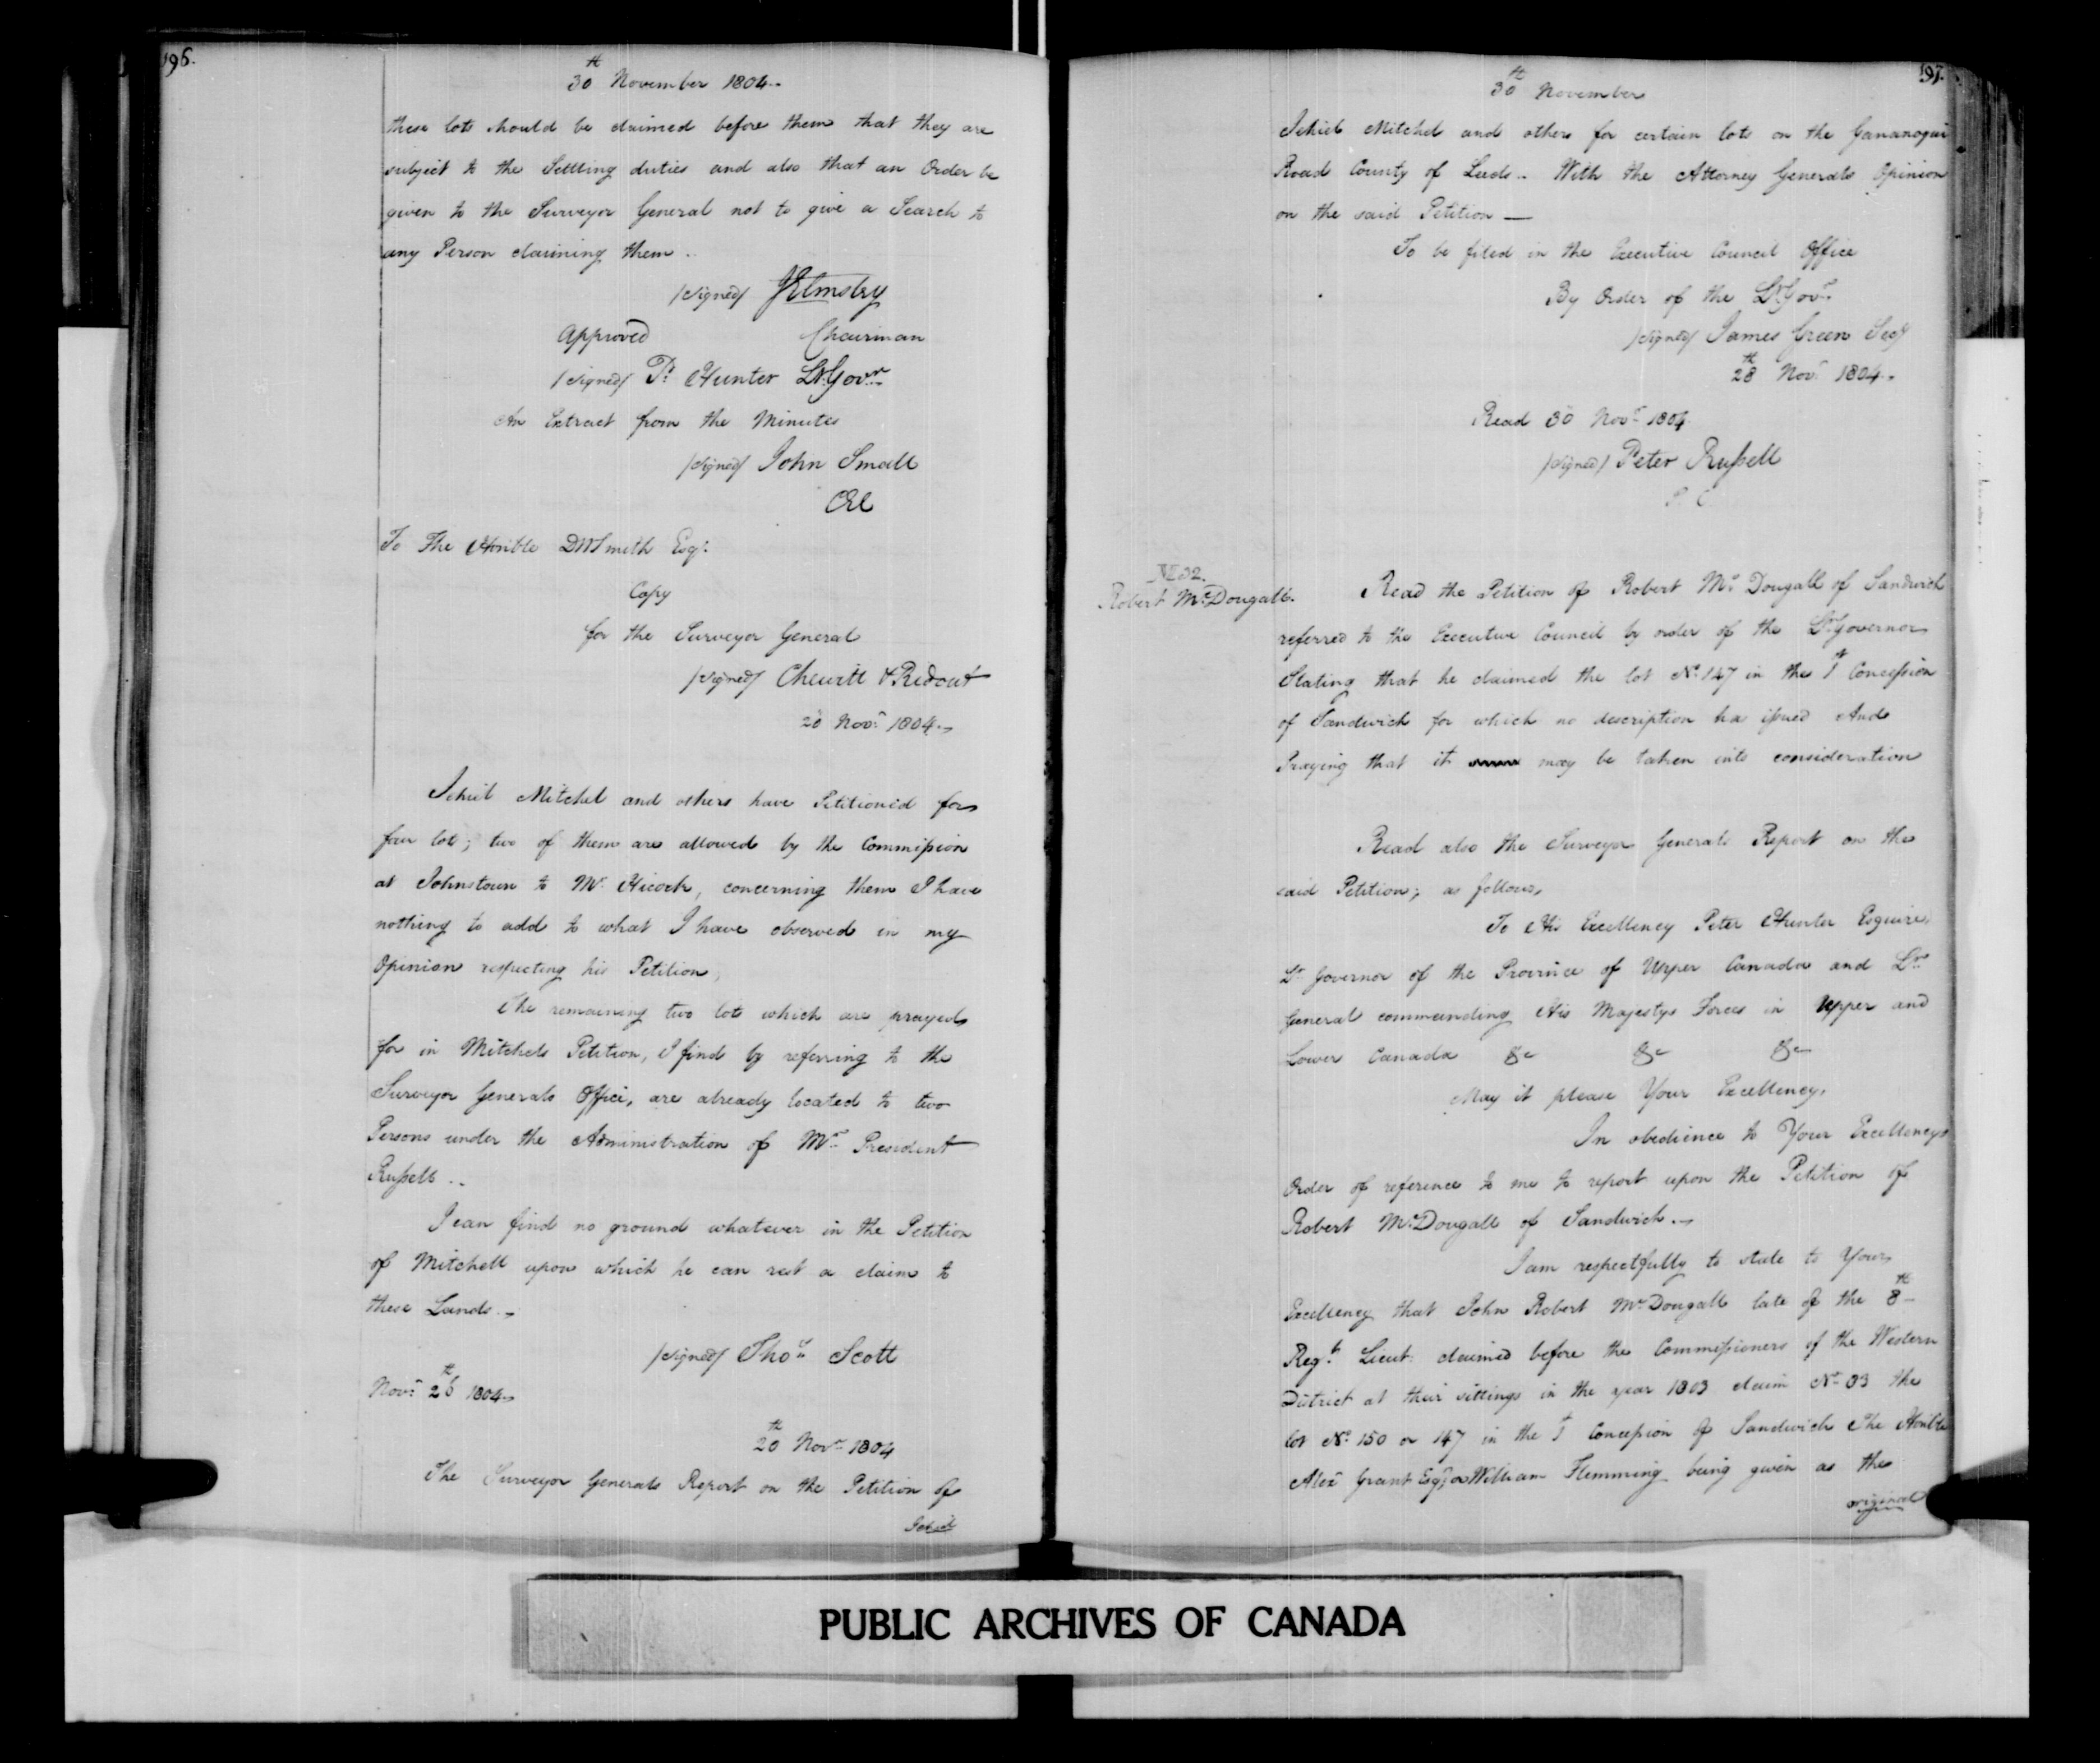 196.
30th November 1804.
these lots should be claimed before them that they are
subject to the Settling duties and also that an Order be
given to the Surveyor General not to give a Search to
any Person claiming them.
/signed/ J Elmsley
Approved Chairman
/signed/ Pr Hunter Lt Govr
An Extract from the Minutes
/signed/ John Small
CEC
To The Honble DW Smith Esqr.
Copy
for the Surveyor General
/signed/ Chewitt & Ridout
20 Novr. 1804.
Jehiel Mitchel and others have Petitioned for
four lots; two of them are allowed by the Commission
at Johnstown to Mr. Hicock, concerning them I have
nothing to add to what I have observed in my
Opinion respecting his Petition,
The remaining two lots which are prayed
for in Mitchels Petition, I find by referring to the
Surveyor Generals Office, are already located to two
Persons under the Administration of Mr. President
Russell..
I can find no ground whatever in the Petition
of Mitchell upon which he can rest a claim to
these Lands.
/signed/ Thos. Scott
Novr. 26th 1804.
20th Novr 1804
The Surveyor Generals Report on the Petition of
Jehiel
197.
30th November
Jehiel Mitchel and others for certain lots on the Gananoqui
Road County of Leeds.. With the Attorney Generals Opinion
on the said Petition —
To be filed in the Executive Council Office
By Order of the Lt. Govr.
/signed/ James Green Secy
28th Novr 1804.
Read 30 Novr 1804.
/signed/ Peter Russell
P. C
No 32.
Robert McDougall.
Read the Petition of Robert Mc Dougall of Sandwich
referred to the Executive Council by order of the Lt. Governor
Stating that he claimed the lot No. 147 in the 1st Concession
of Sandwich for which no description has issued And
Praying that it may be taken into consideration
Read also the Surveyor Generals Report on the
said Petition; as follows,
To His Excellency Peter Hunter Esquire,
Lt Governor of the Province of Upper Canada and Lt.
General commanding His Majestys Forces in Upper and
Lower Canada &c &c &c
May it please Your Excellency,
In obedience to Your Excellencys
Order of reference to me to report upon the Petition of
Robert McDougall of Sandwich.
I am respectfully to state to Your
Excellency that John Robert McDougall late of the 8th
Regt. Lieut: claimed before the Commissioners of the Western
District at their sittings in the year 1803 claim No. 33 the
lot No. 150 or 147 in the 1st Concession of Sandwich The Honble
Alexr Grant Esqr. or William Flemming being given as the
original
PUBLIC ARCHIVES OF CANADA